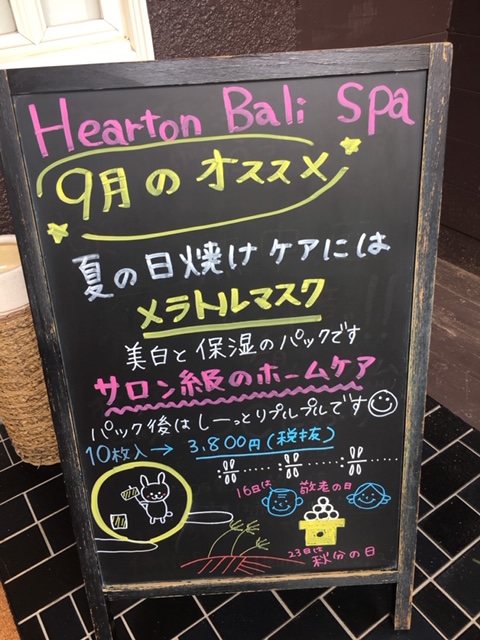 Hearton Bali Spa
9月のオススメ
夏の日焼けケアには
メラトルマスク
美白と保湿のパックです
サロン級のホームケア
パック後はしーっとりプルプルです
10枚入→ 3,800円(税抜)
16日は 敬老の日
23日は 秋分の日